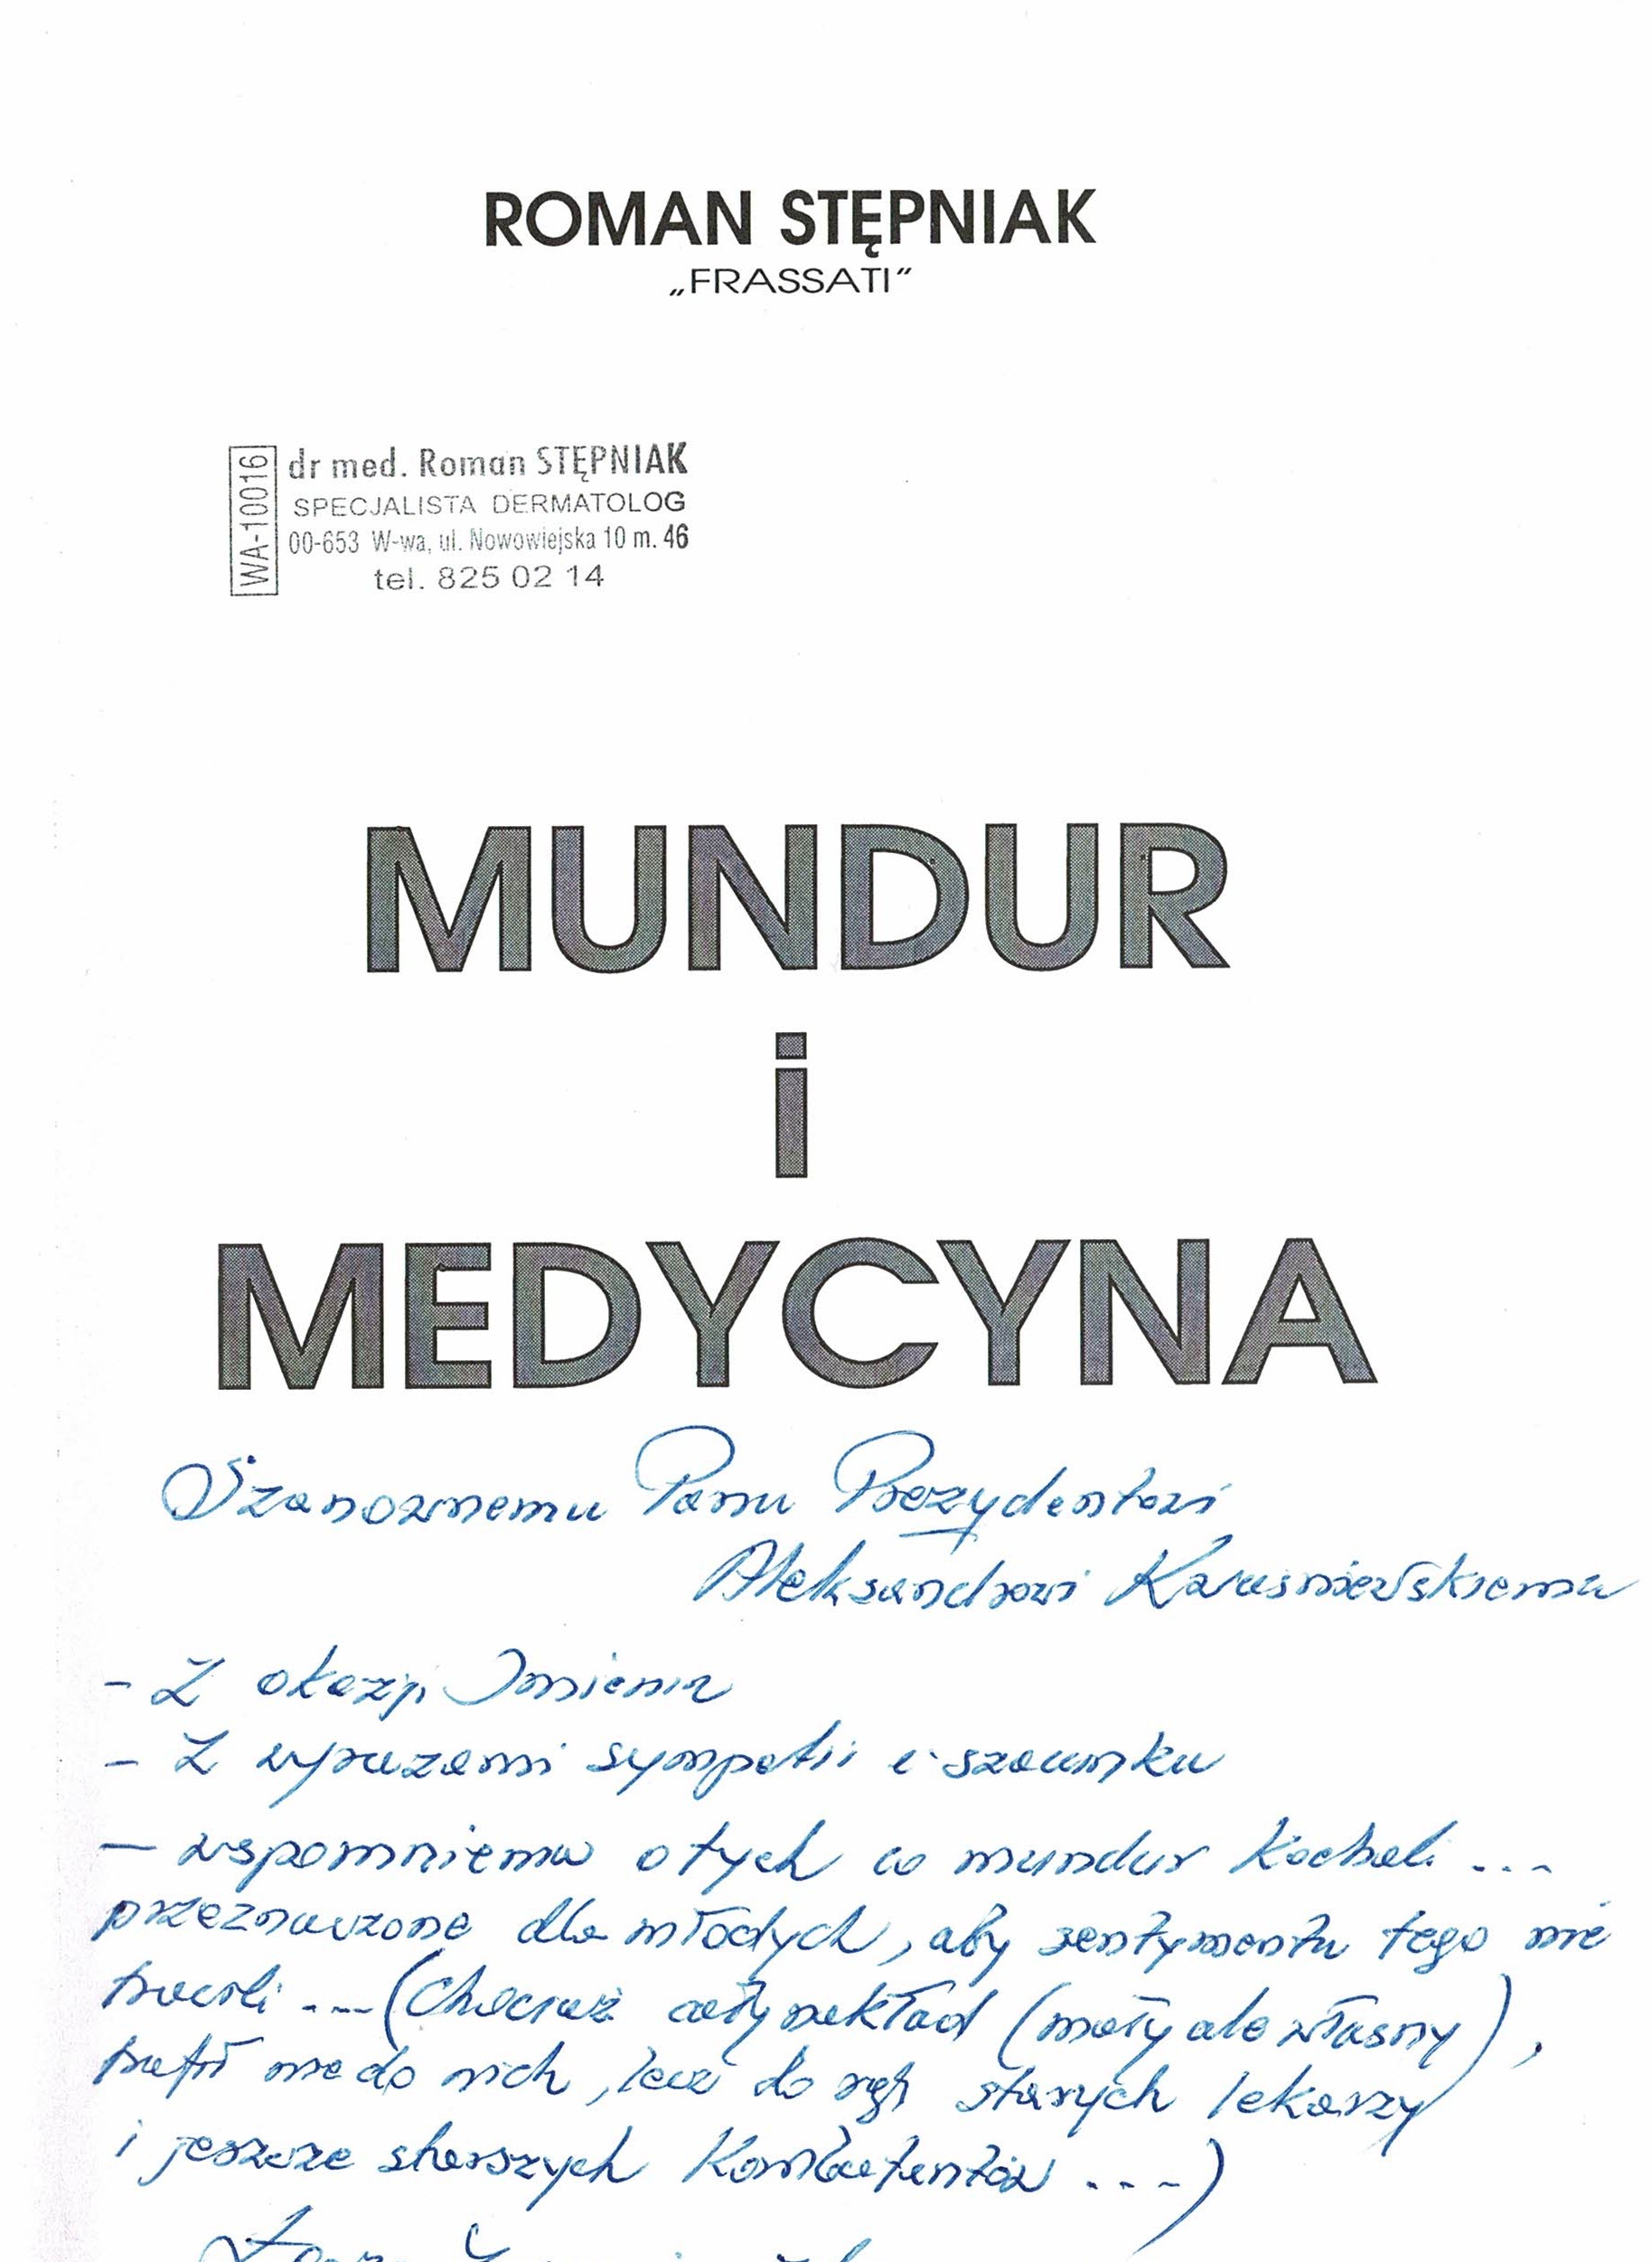 ROMAN STĘPNIAK
„FRASSATI”
WA-10016
dr med. Roman STĘPNIAK
SPECJALISTA DERMATOLOG
00-653 W-wa, ul. Nowowiejska 10 m. 46
tel. 825 02 14
MUNDUR
i
MEDYCYNA
Szanownemu Panu Prezydentowi
Aleksandrowi Kwaśniewskiemu
- Z okazji Imienin
- Z wyrazami sympatii i szacunku
- wspomnienia o tych co mundur kochali ...
przeznaczone dla młodych, aby sentymentu tego nie
tracili ... (Chociaż cały nakład (mały ale własny),
trafił nie do nich, lecz do rąk starych lekarzy
i jeszcze starszych Kombatantów ...)